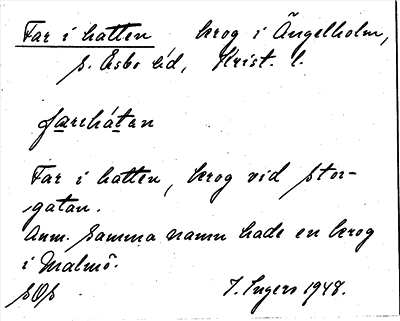 Tar i hatten krog i Ängelholm,
s. Åsbo hd, Krist. l.
tarihátan
Tar i hatten, krog vid Stor-
gatan.
Anm. Samma namn hade en krog
i Malmö.
I. Ingers 1948.